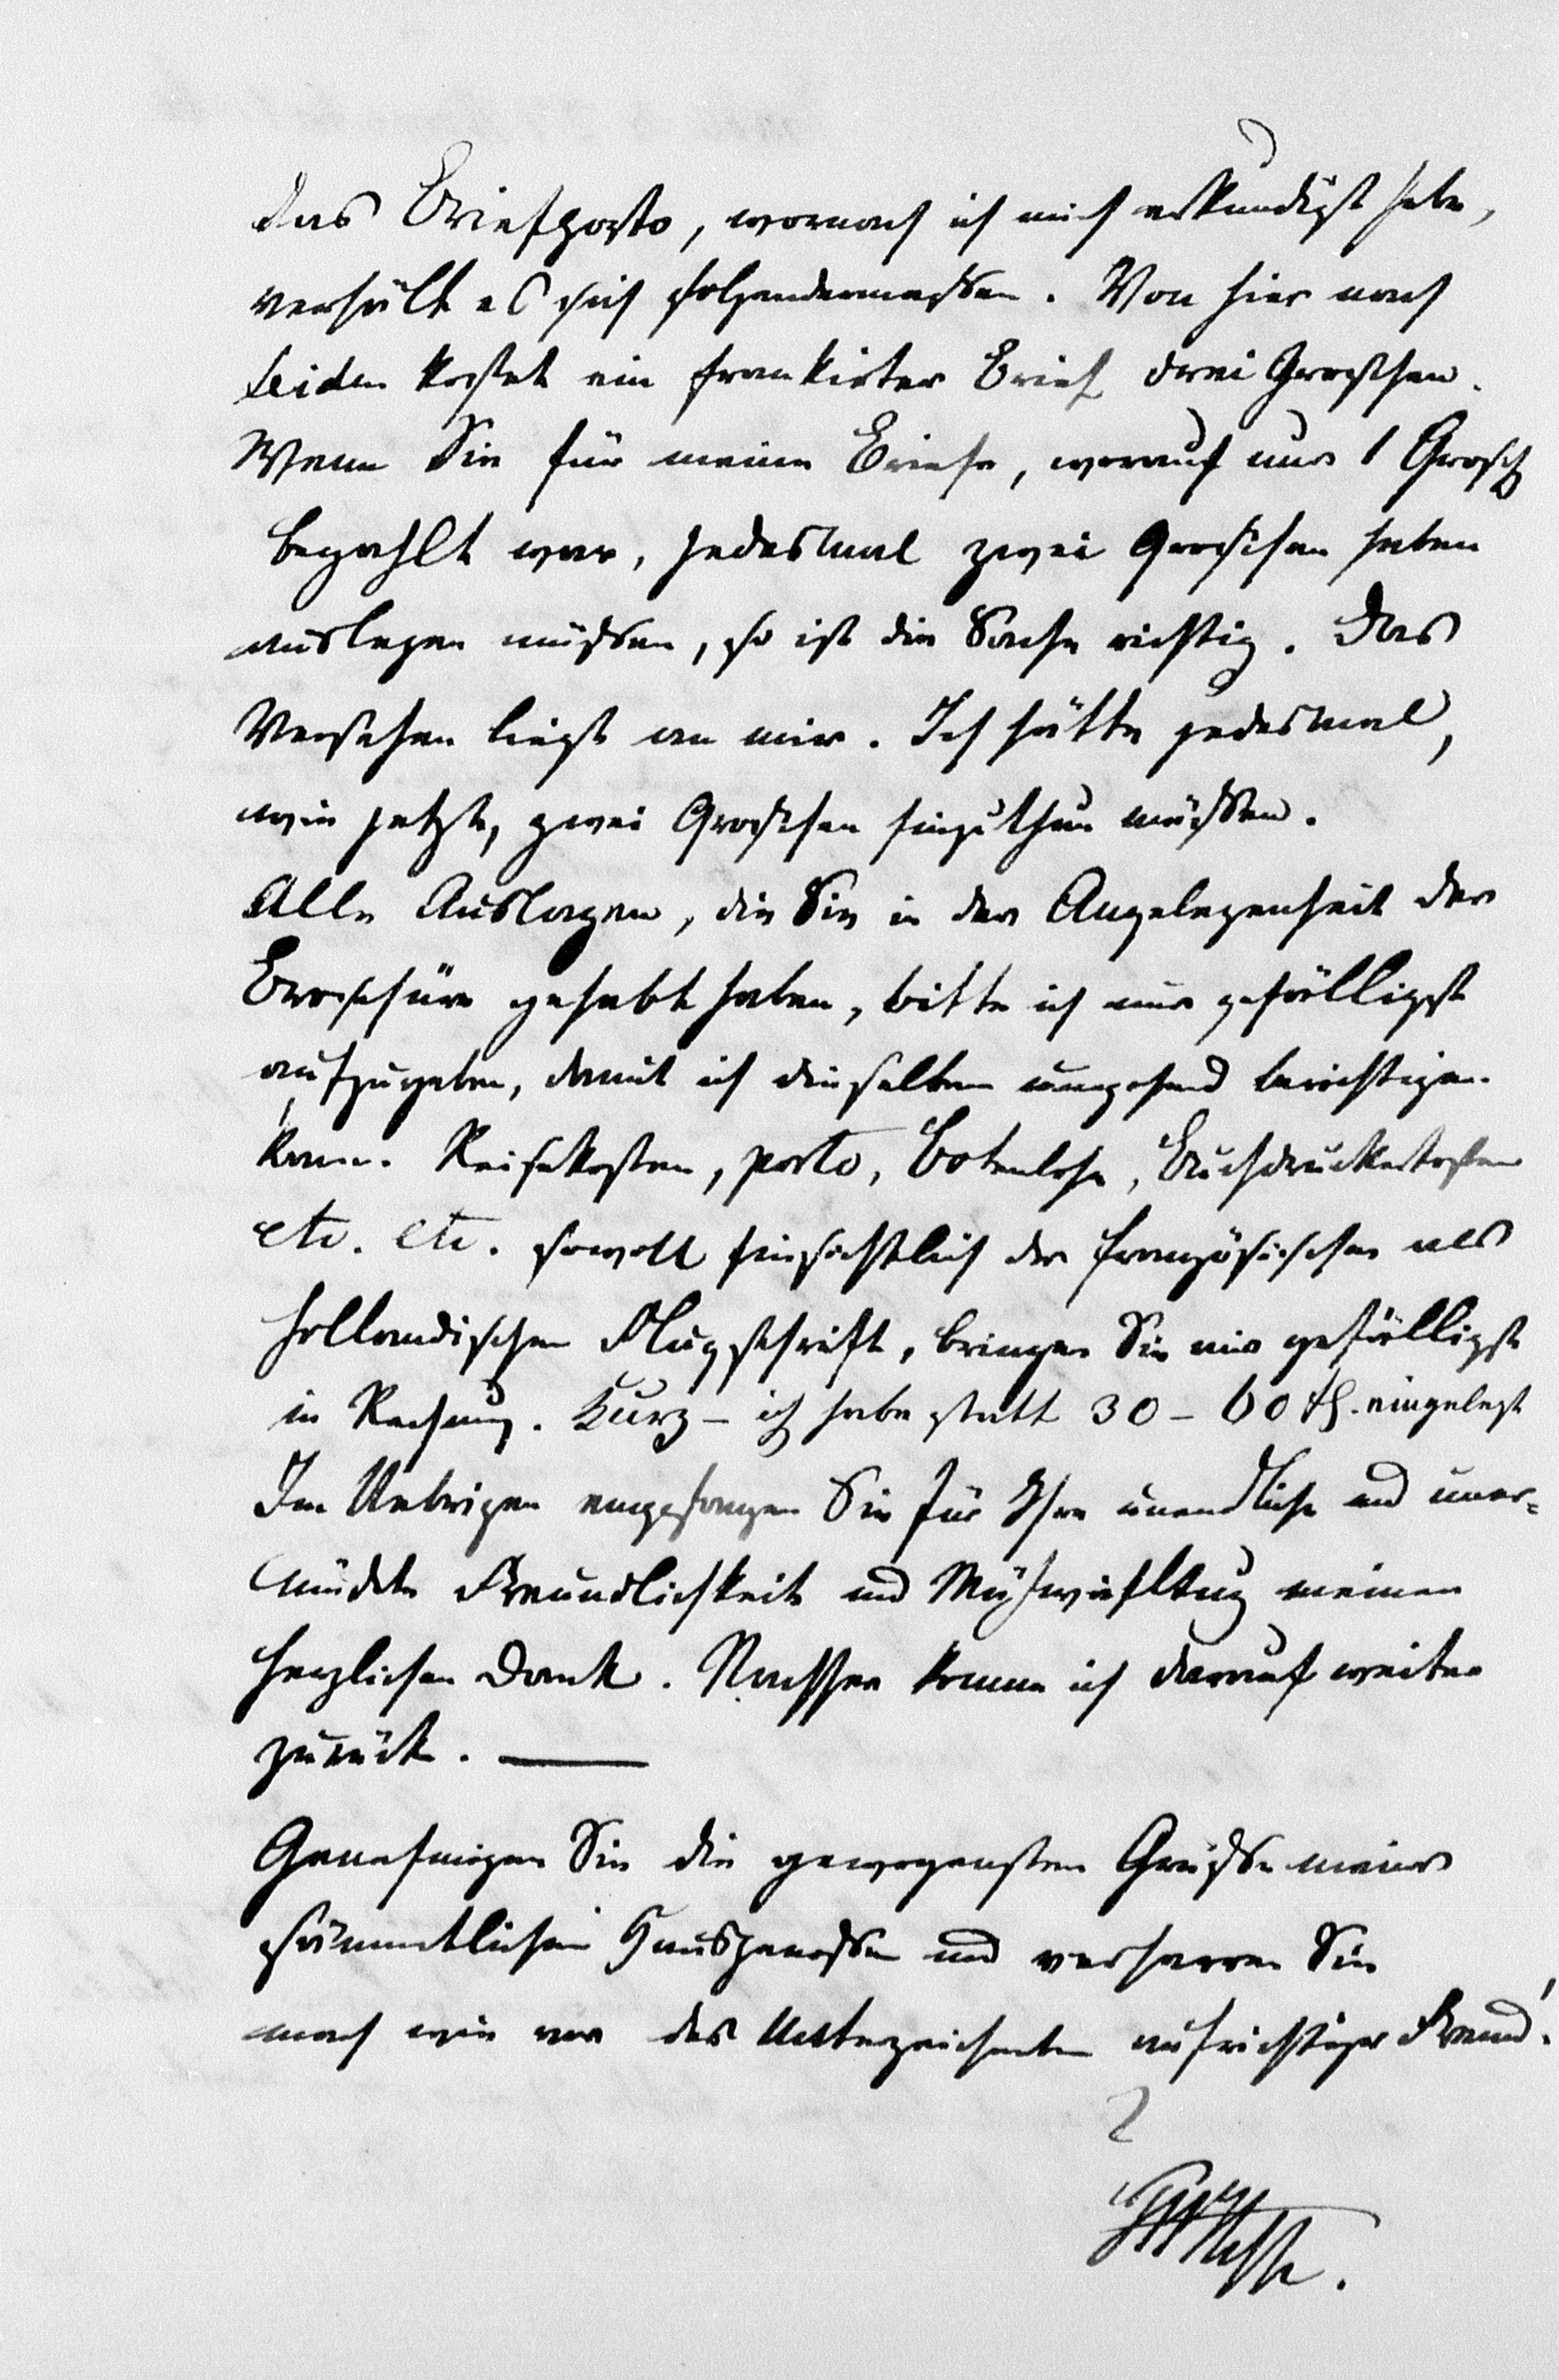 das Briefporto, wornach ich mich erkundigt habe,
verhält es sich folgendermassen. Von hier nach
Leiden kostet ein frankirter Brief drei Groschen.
Wenn Sie für meine Briefe, worauf nur 1 Grosch
bezahlt war, jedesmal zwei Groschen haben
auslegen müssen, so ist die Sache richtig. Das
Versehen liegt an mir. Ich hätte jedesmal,
wie jetzt, zwei Groschen hinzuthun müssen.
Alle Auslagen, die Sie in der Angelegenheit der
Broschüre gehabt haben, bitte ich nur gefälligst
aufzugeben, damit ich dieselben umgehend berichtigen
kann. Reisekosten, porto, Botenlohn, Buchdruckerkosten
etc. etc. sowohl hinsichtlich der französischen als
holländischen Flugschrift, bringen Sie mir gefälligst
in Rechnung. Kurz – ich habe statt 30 – 60 th. eingelegt
Im Uebrigen empfangen Sie für Ihre unendliche und uner=
müdete Freundlichkeit und Mühwaltung meinen
herzlichen Dank. Nachher komme ich darauf weiter
zurück. —
Genehmigen Sie die gewogensten Grüsse meiner
sämmtlichen Hausgenossen und verharren Sie
nach wie vor des Unterzeichneten aufrichtiger Freund!